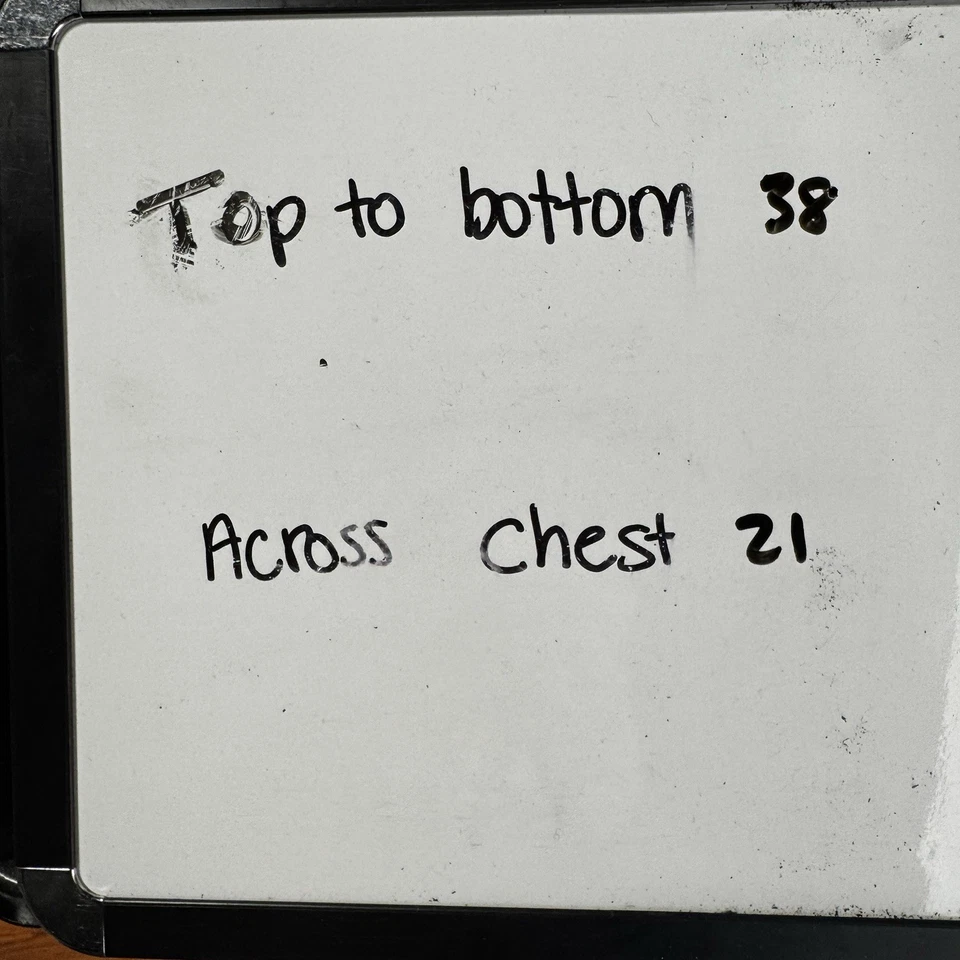 Top to bottom 38
Across chest 21